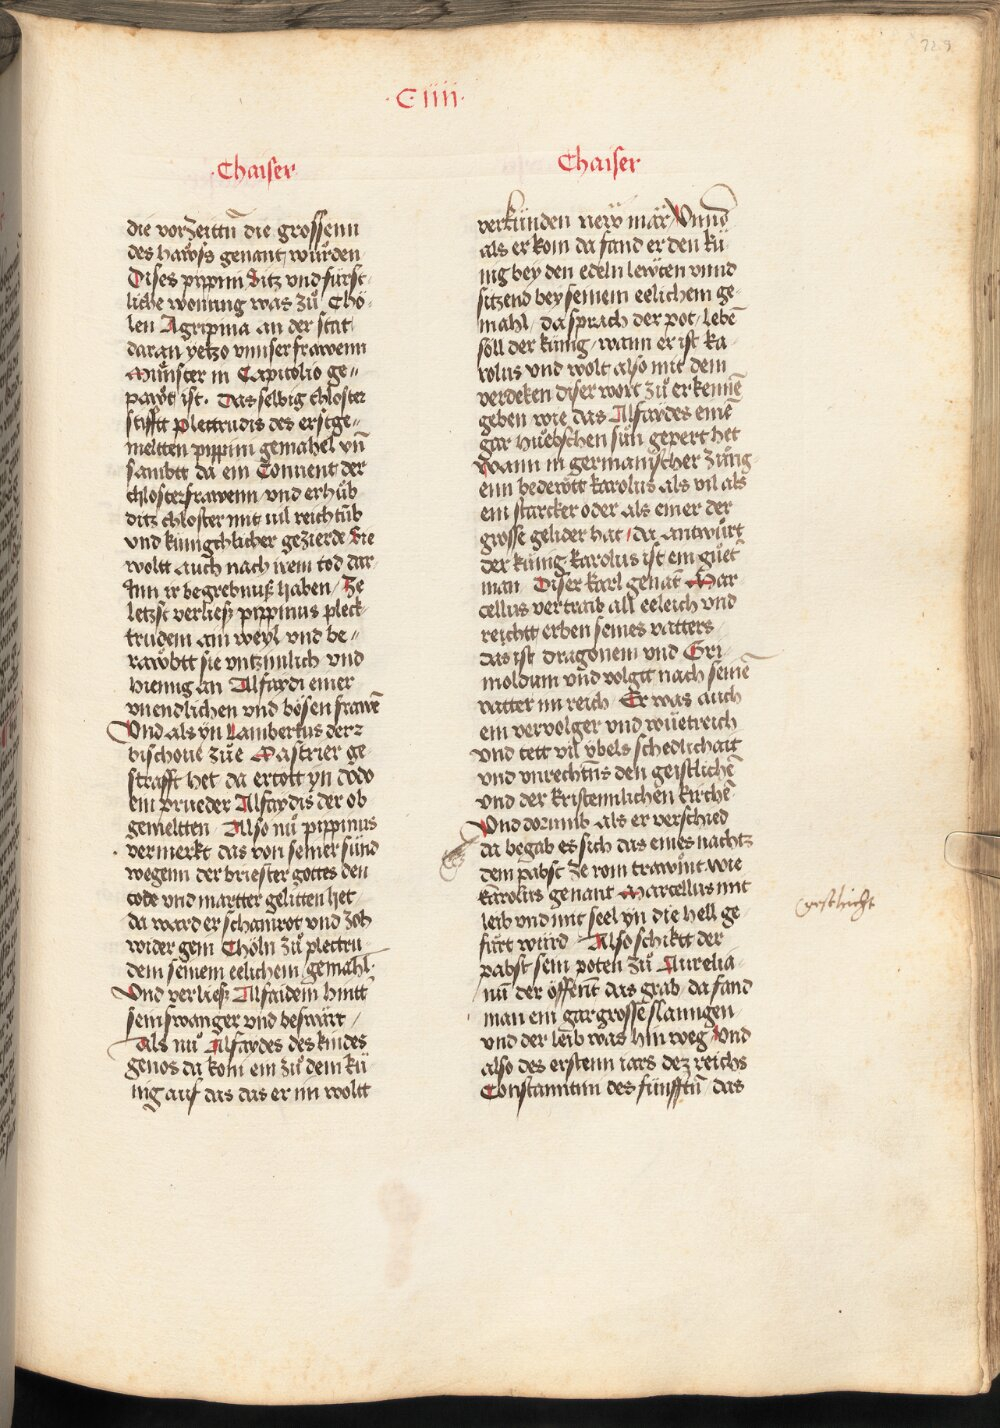 ·C·iiii·
·Chaiser
die vorzeittn̄ die grossenn
des haẃss genant wurden
Dises pipinn Sitz vnd furst-
liche wonung was zů Chö-
len Agripina an der stat
daran yetzo vnnser frawenn
Můnster in Capitolio ge„
paẃt ist. Das selbig chloster
stifftt plectrudis des erstge„
meltten pippini gemahel vn̄
sambtt da ein Conuent der
chlosterfrawenn vnd erhůb
ditz chloster mit vil reichtūb
vnd künigchlicher gezierde Sie
woltt auch nach irem tod dar-
Inn ir begrebnuß haben / Ze
letzst verließ pippinus pleck-
trudem am weyl vnd be„
rawbtt sie vntzimlich vnd
hienng an Alfaydi einer
vnendlichen vnd bösen frawē
Vnd als yn Lambertus der z
bischoue zůe Mastrier ge-
strafft het da ertott yn Dodo
ein prueder Alfaydis der ob
gemeltten / Also nů pippinus
vermerkt das von seiner sünd
wegenn der briester gottes den
tode vnd martter gelitten het-
da ward er schamrot vnd zoh
wider gem Chöln zů plectru-
dem seinem eelichem gemahl·
Vnd verließ Alfaidem hintt
sein swanger vnd beswärt /
Als nů Alfaydes des kindes
genos da kom ein zů dem kü
nig auf das das er im woltt
Chaiser
verkünden neẅ mär Vnnd
als er kom da fand er den kü-
nig bey den edeln leẅten vnnd
sitzend bey seinem eelichem ge-
mahl / da sprach der pot / lebē
söll der künig / wann er ist ka-
rolus vnd wolt also mit dem
verdeken diser wort zů erkennē
geben wie das Alfaydes eine̅
gar huebschen sün gepert het
Wann in germanischer züng-
enn bedeẃtt karolus als vil als
ein starcker oder als einer der
grosse gelider hat / da antwurt
der künig karolus ist ein guet̄
man / Diser karl genāt Mar-
cellus vertraib all eeleich vnd
reichtt erben seines vatters
das ist dragonem vnd Gri-
moldum vnd volgtt nach seinē
vatter im reich / Er was auch
ein vervolger vnd wüetreich
vnd tett vil vbels schedlichait
vnd vnrechtn̄s den geistlichē
vnd der kristennlichen kirchē
Vnd dorumb als er verschied
da begab es sich das eines nachtz
dem pabst ze rom trawmt wie
karolus genant Marcellus mit
leib vnd mit seel yn die hell ge-
fürt würd / Also schiktt der
pabst sein poten zů Aurelia-
nū der öffent das grab / da fand
man ein gar grosse slanngen
vnd der leib was hinweg Vnd
also des erstenn iars dez reichs
Constantini des fünfftn̄ das